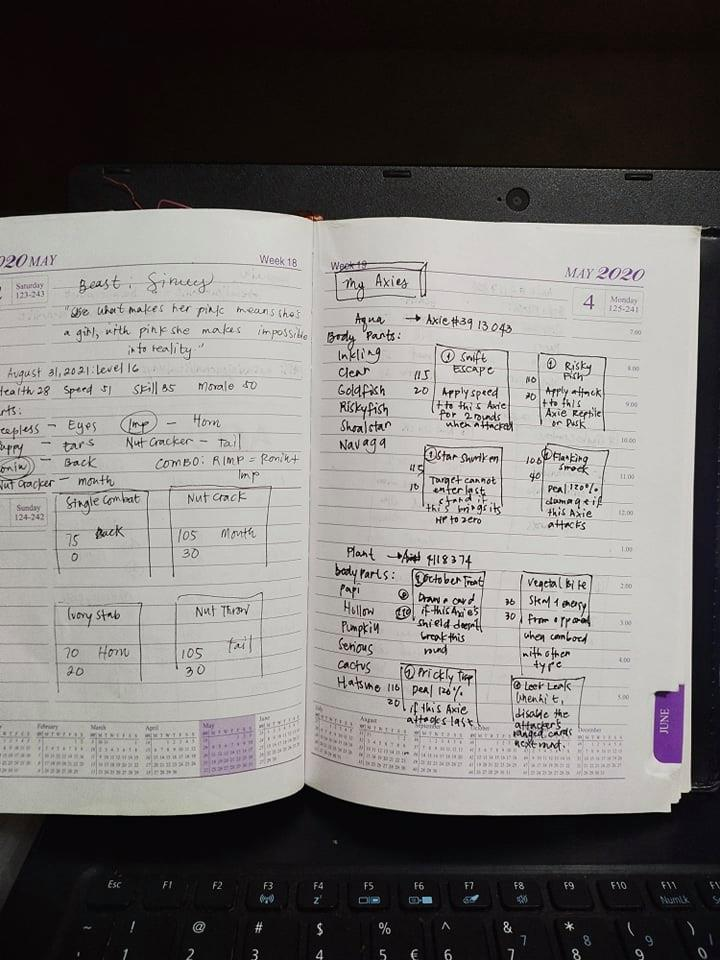 2020 MAY
Week 18
Saturday
123-243
Beast : 
"She what makes her pink means she's
a girl, with pink she makes impossible
into reality"
August 31, 2021: Level 16
Health 28 Speed 51 Skill 35 Morale 50
Parts:
Sleepless - Eyes Imp - Horn
Puppy - Ears Nut Cracker - Tail
Ronin - Back COMBO: RIMP = Ronin +
Imp
Nut Cracker - mouth
Sunday
124-242
Single Combat
75 Back
0
Nut Crack
105 Mouth
30
Ivory Stab
70 Horn
20
Nut Throw
105 Tail
30
February
March
April
May
June
Week 19
MAY 2020
My Axies
4
Monday
125-241
Aqua → Axie #3913043
Body Parts:
Inkling
Clear
Goldfish
Riskyfish
Shoalstar
Navaga
① Swift
Escape
115
20
Apply speed
+ to this Axie
for 2 rounds
when attacked
① Risky
Fish
110
30
Apply attack
+ to this
Axie Reptile
or Dusk
① Star Shuriken
115
10
Target cannot
enter last
stand if
this brings its
HP to zero
① Flanking
Smack
100
40
Deal 120%
damage if
this Axie
attacks
Plant → 4118374
body parts:
Papi
Hollow
Pumpkin
Serious
Cactus
Hatsune
① October Treat
0
110
Draw a card
if this Axie's
shield doesn't
break this
round
Vegetal Bite
30
30
Steal 1 energy
from opponent
when comboed
with other
type
① Prickly Trap
110
20
Deal 120%
if this Axie
attacks last
Leek Leak
When hit,
disable the
attacker's
ranged cards
next round.
7.00
8.00
9.00
10.00
11.00
12.00
1.00
2.00
3.00
4.00
5.00
July
August
September
October
November
December
JUNE
Esc F1 F2 F3 F4 F5 F6 F7 F8 F9 F10 F11
NumLk
~ ! @ # $ % ^ & * ( )
€ 7 8 9